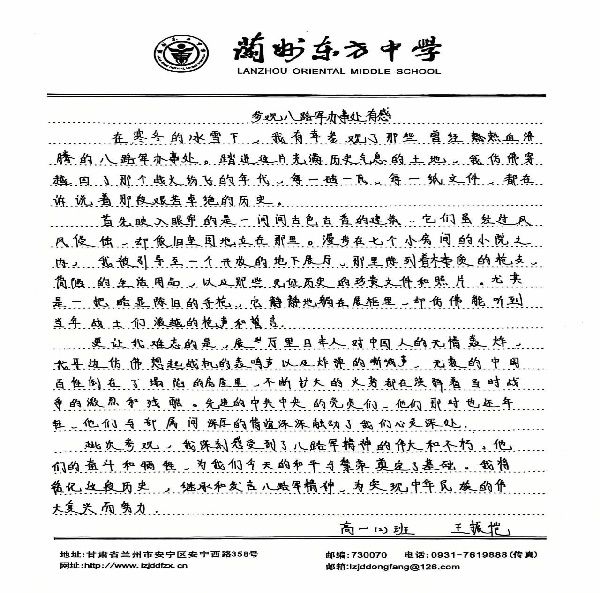 兰州东方中学
LANZHOU ORIENTAL MIDDLE SCHOOL
参观八路军办事处有感
在寒冬的冰雪下，我有幸参观了那些曾经热血沸
腾的八路军办事处。踏进这片充满历史气息的土地，我仿佛穿
越回了那个战火纷飞的年代，每一砖一瓦，每一纸文件，都在
诉说着那段艰苦卓绝的历史。
首先映入眼帘的是一间间古色古香的建筑，它们虽经过风
风侵蚀，却依旧牢固地立在那里。漫步在七个小房间的小院之
内，我被引导至一个开放的地下展厅，那里陈列着各类的枪支，
简陋的生活用品，以及那些见证历史的珍贵文件和照片。尤其
是一把略显陈旧的手枪，它静静地躺在展柜里，却仿佛能听到
当年战士们激越的枪声和誓言。
更让我难忘的是，展厅里日本人对中国人的无情轰炸，
尤其这仿佛想起战机的轰鸣声以及炸弹的嘶吼声，无数的中国
百姓倒在了塌陷的房屋里，不断扩大的火势都在诠释着当时战
争的激烈和残酷。先进的中共中央的党员们，他们那时也还年
轻，他们与部属间深厚的情谊深深触动了我们心灵深处。
此次参观，我深刻感受到了八路军精神的伟大和不朽，他
们的奋斗和牺牲，为我们今天的和平与繁荣奠定了基础。我将
铭记这段历史，继承和发言八路军精神，为实现中华民族的伟
大复兴而努力.
高一(2)班 王振恺
地址:甘肃省兰州市安宁区安宁西路358号 邮编:730070 电话:0931-7619888(传真)
网址:http://www.lzjddfzx.cn 邮箱:lzjddongfang@126.com